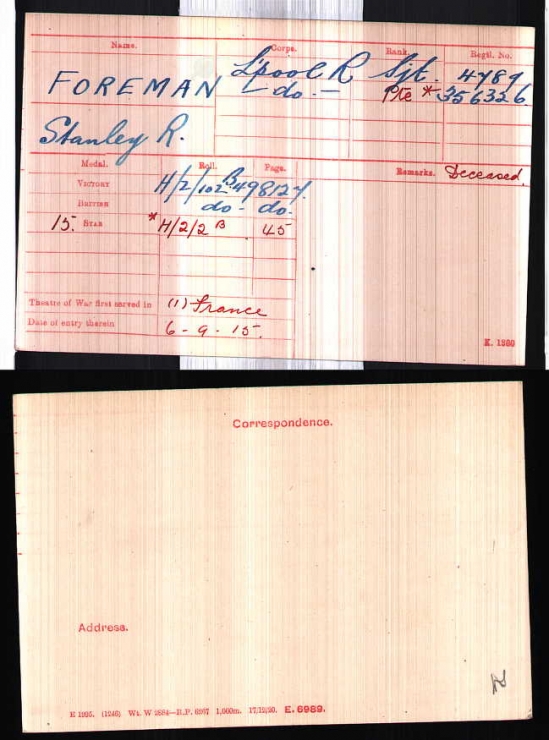 Name. Corps. Rank. Regtl. No.
FOREMAN L'pool R Sjt. 4789
— do. — Pte * 356326
Stanley R.
Medal. Roll. Page. Remarks. Deceased.
VICTORY H/2/102 B
BRITISH do- do.
15. STAR * H/2/2 B 45
Theatre of War first served in (1) France
Date of entry therein 6 - 9 - 15.
K. 1380
Correspondence.
Address.
E. 6989.